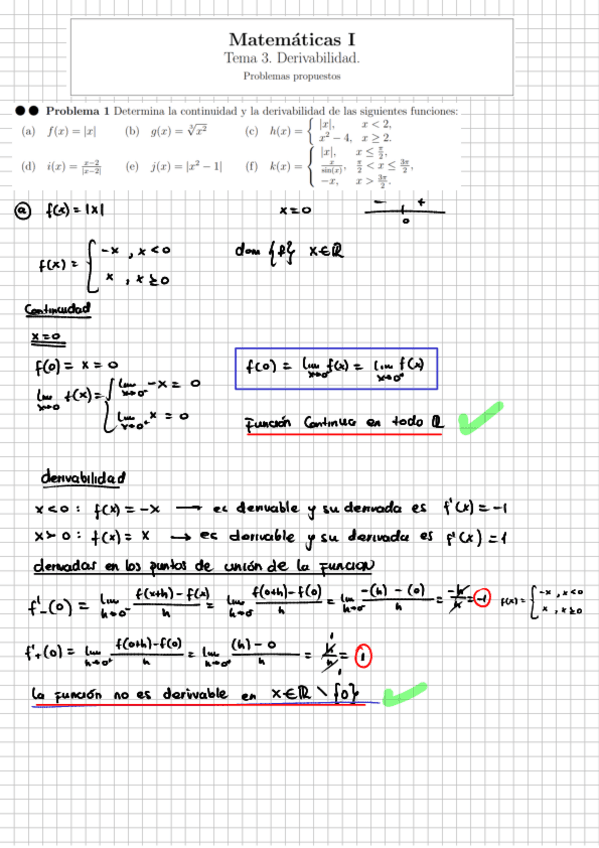 Matemáticas I
Tema 3. Derivabilidad.
Problemas propuestos
●● Problema 1 Determina la continuidad y la derivabilidad de las siguientes funciones:
(a) f(x) = |x| (b) g(x) = ∛x² (c) h(x) = { |x|, x < 2, x² − 4, x ≥ 2.
(d) i(x) = (x−2)/|x−2| (e) j(x) = |x² − 1| (f) k(x) = { |x|, x ≤ π/2, x/sin(x), π/2 < x ≤ 3π/2, −x, x > 3π/2.
ⓐ f(x) = |x| x=0 − +
0
f(x) = { -x , x<0 dom {f} x∈ℝ
x , x≥0
Continuidad
x=0
f(0) = x = 0 f(0) = lim x→0⁻ f(x) = lim x→0⁺ f(x)
lim x→0 f(x) = { lim x→0⁻ -x = 0
lim x→0⁺ x = 0
Función Continua en todo ℝ
derivabilidad
x<0 : f(x) = -x → es derivable y su derivada es f'(x) = -1
x>0 : f(x) = x → es derivable y su derivada es f'(x) = 1
derivadas en los puntos de unión de la función
f'₋(0) = lim h→0⁻ (f(x+h) - f(x))/h = lim h→0⁻ (f(0+h) - f(0))/h = lim h→0⁻ (-(h) - (0))/h = -h/h = -1 f(x) = { -x , x<0
x , x≥0
f'₊(0) = lim h→0⁺ (f(0+h)-f(0))/h = lim h→0⁺ ((h) - 0)/h = h/h = 1
la función no es derivable en x∈ℝ \ {0}